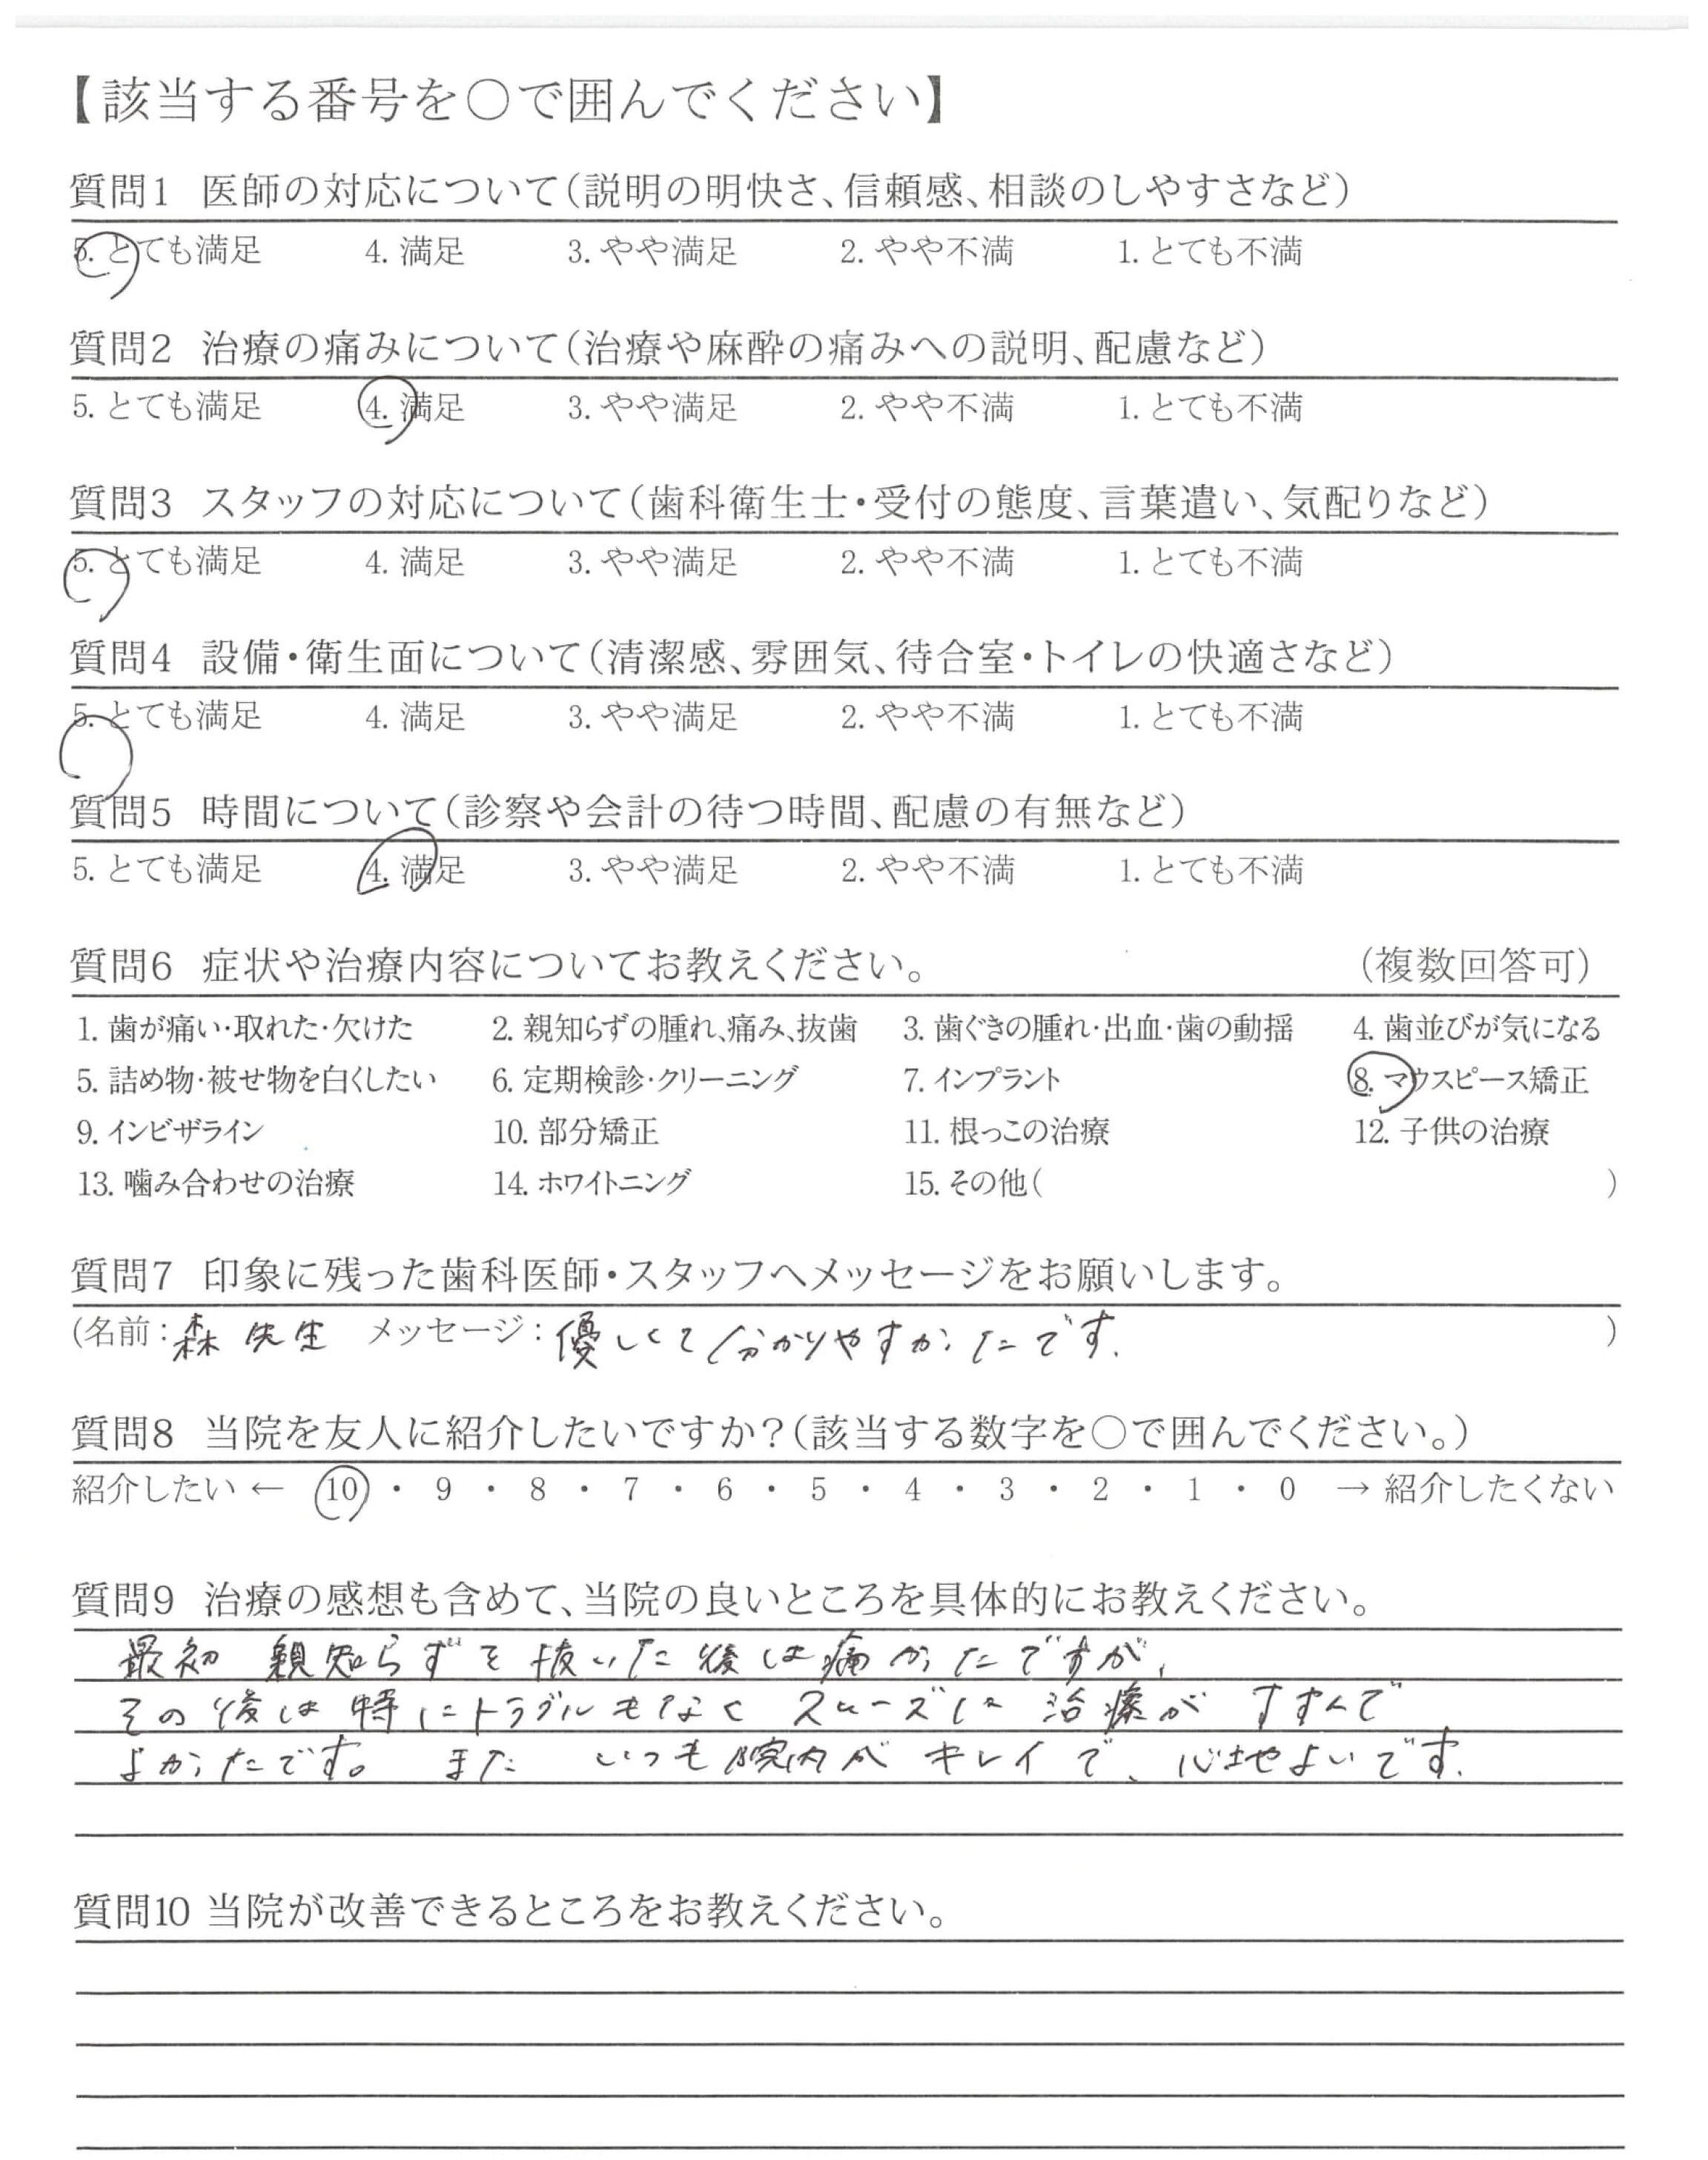 【該当する番号を○で囲んでください】
質問1 医師の対応について(説明の明快さ、信頼感、相談のしやすさなど)
5. とても満足 4. 満足 3. やや満足 2. やや不満 1. とても不満
質問2 治療の痛みについて(治療や麻酔の痛みへの説明、配慮など)
5. とても満足 4. 満足 3. やや満足 2. やや不満 1. とても不満
質問3 スタッフの対応について(歯科衛生士・受付の態度、言葉遣い、気配りなど)
5. とても満足 4. 満足 3. やや満足 2. やや不満 1. とても不満
質問4 設備・衛生面について(清潔感、雰囲気、待合室・トイレの快適さなど)
5. とても満足 4. 満足 3. やや満足 2. やや不満 1. とても不満
質問5 時間について(診察や会計の待つ時間、配慮の有無など)
5. とても満足 4. 満足 3. やや満足 2. やや不満 1. とても不満
質問6 症状や治療内容についてお教えください。 (複数回答可)
1. 歯が痛い・取れた・欠けた 2. 親知らずの腫れ、痛み、抜歯 3. 歯ぐきの腫れ・出血・歯の動揺 4. 歯並びが気になる
5. 詰め物・被せ物を白くしたい 6. 定期検診・クリーニング 7. インプラント 8. マウスピース矯正
9. インビザライン 10. 部分矯正 11. 根っこの治療 12. 子供の治療
13. 噛み合わせの治療 14. ホワイトニング 15. その他( )
質問7 印象に残った歯科医師・スタッフへメッセージをお願いします。
(名前：森 先生 メッセージ：優しくて分かりやすかったです. )
質問8 当院を友人に紹介したいですか?(該当する数字を○で囲んでください。)
紹介したい ← 10 ・ 9 ・ 8 ・ 7 ・ 6 ・ 5 ・ 4 ・ 3 ・ 2 ・ 1 ・ 0 → 紹介したくない
質問9 治療の感想も含めて、当院の良いところを具体的にお教えください。
最初 親知らずを抜いた後は痛かったですが、
その後は特にトラブルもなく スムーズに 治療が すすんで
よかったです。 また いつも院内が キレイ で、心地よいです.
質問10 当院が改善できるところをお教えください。